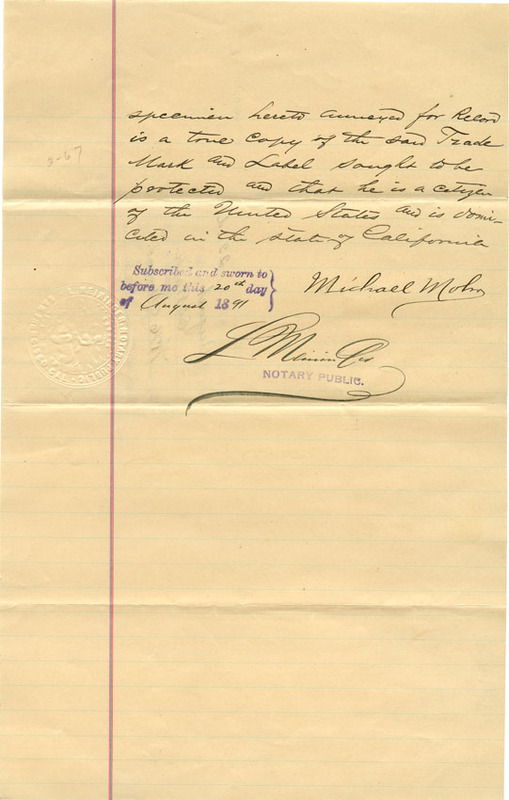 specimen hereto annexed for Record
is a true copy of the said Trade
Mark and Label sought to be
protected and that he is a citizen
of the United States and is domi-
ciled in the state of California
3-67
Subscribed and sworn to
before me this 20th day
of August 1891
Michael Mohr
L
NOTARY PUBLIC.